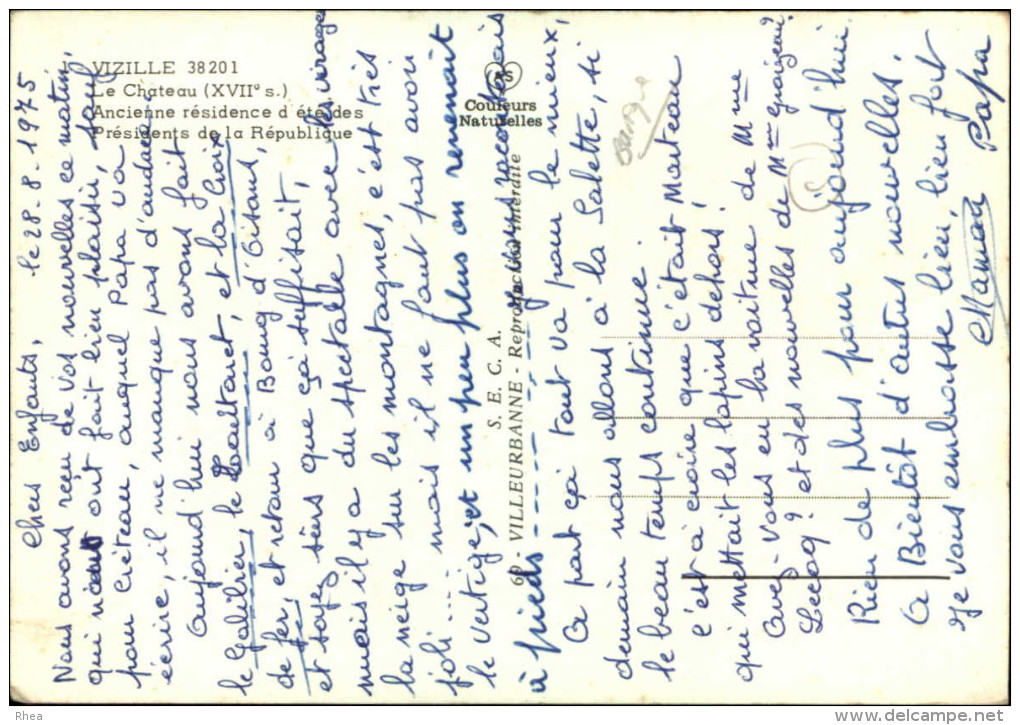 1 - VIZILLE 38201
Le Château (XVIIe s.)
Ancienne résidence d'été des
Présidents de la République
Couleurs
Naturelles
S. E. C. A.
69 - VILLEURBANNE - Reproduction interdite
le 28.8.1975
Chers Enfants,
Nous avons reçu de vos nouvelles ce matin,
qui nous ont fait bien plaisir, sauf
pour Créteau, auquel Papa va
écrire, il ne manque pas d'audace
Aujourd'hui nous avons fait
le Galibier, le Lautaret, et la Croix
de fer, et retour à Bourg d'Oisans,
et soyez sûrs que ça suffisait,
mais il y a du spectacle avec les virages
la neige sur les montagnes, c'est très
joli... mais il ne faut pas avoir
le vertige, et un peu plus on revenait
à pieds ---- nous vous raconterons
A part ça tout va pour le mieux,
demain nous allons à la Salette, si
le beau temps continue.
c'est à croire que c'était Marteau
qui mettait les lapins dehors!
Avez-vous eu la voiture de Mme
Lecoq? et des nouvelles de Mme
Rien de plus pour aujourd'hui
A Bientôt d'autres nouvelles.
Je vous embrasse bien, bien fort
Maman Papa
Rhea
www.delcampe.net